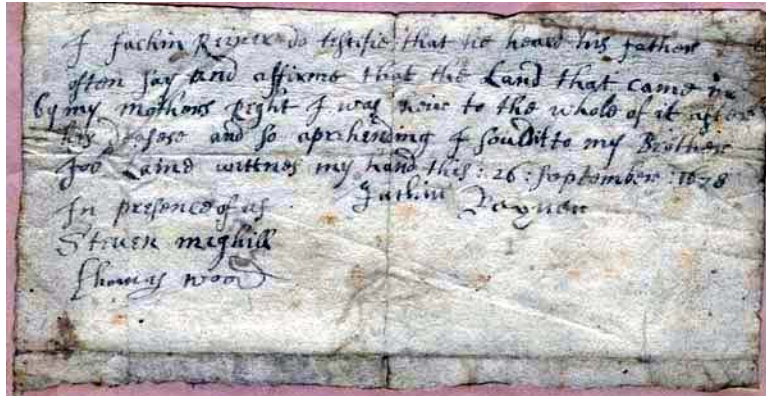 I Jachin Reyner do testifie that he heard his father
often say and affirme that the Land that came in
by my mothers Right I was heire to the whole of it after
his desese and so aprehending I sould it to my Brother
Land wittnes my hand this : 26 : September : 1678
Jachin Reyner
In presence of us
Steuen mighill
Thomas wood